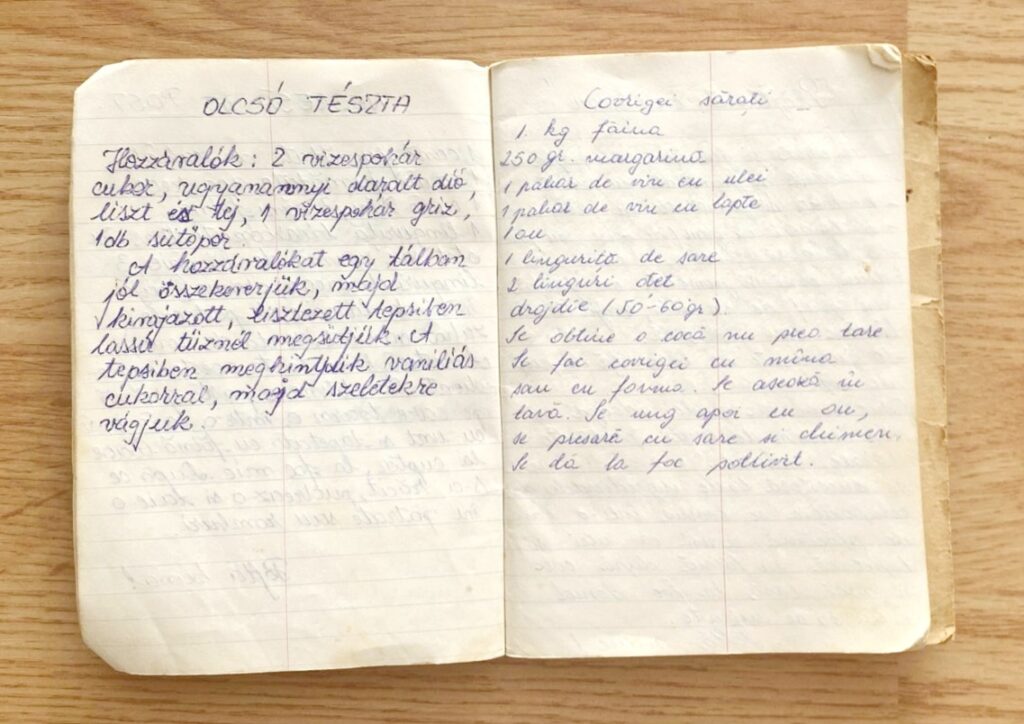 OLCSÓ TÉSZTA
Hozzávalók: 2 vizespohár
cukor, ugyanannyi darált dió,
liszt és tej, 1 vizespohár gríz,
1 db sütőpor
A hozzávalókat egy tálban
jól összekeverjük, majd
kivajazott, lisztezett tepsiben
lassú tűznél megsütjük. A
tepsiben meghintjük vaniliás
cukorral, majd szeletekre
vágjuk.
Covrigei sărați
1 kg făină
250 gr. margarină
1 pahar de vin cu ulei
1 pahar de vin cu lapte
1 ou
1 linguriță de sare
2 linguri oțet
drojdie (50-60gr).
Se obține o cocă nu prea tare.
Se fac covrigei cu mîna
sau cu forma. Se așează în
tavă. Se ung apoi cu ou,
se presară cu sare si chimen.
Se dă la foc potrivit.